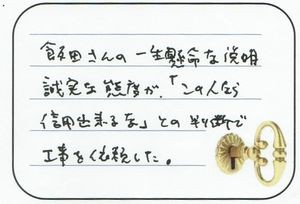 飯田さんの一生懸命な説明
誠実な態度が、「この人なら
信用出来るな」との判断で
工事を依頼した。